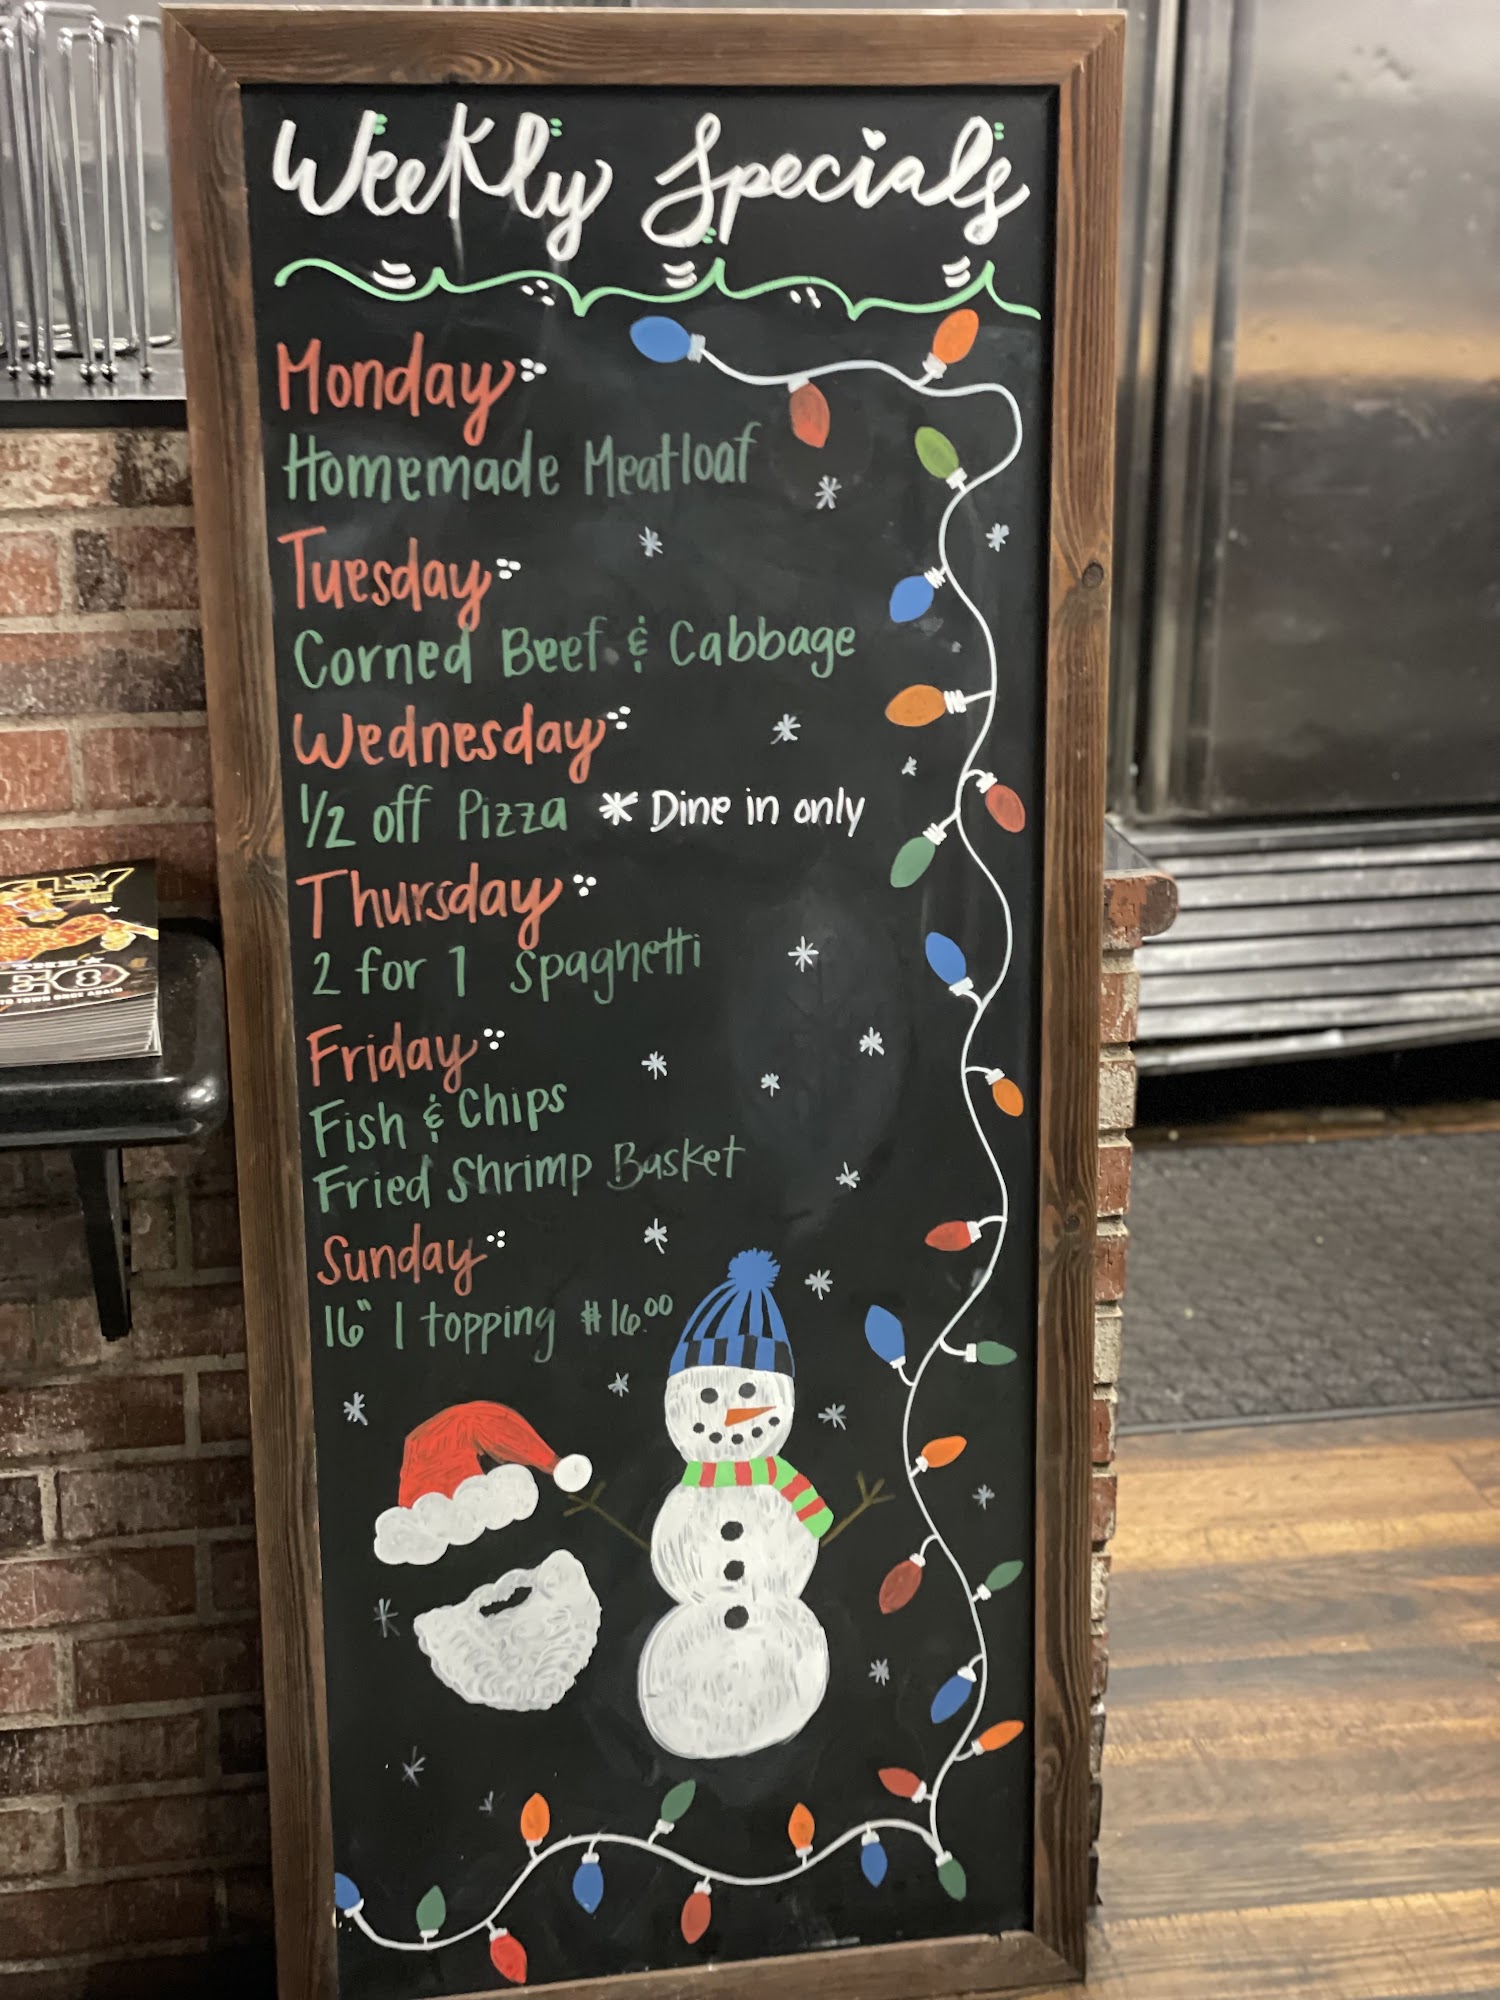 Weekly Specials
Monday
Homemade Meatloaf
Tuesday
Corned Beef & Cabbage
Wednesday
1/2 off Pizza * Dine in only
Thursday
2 for 1 Spaghetti
Friday
Fish & Chips
Fried Shrimp Basket
Sunday
16" 1 topping $16.00